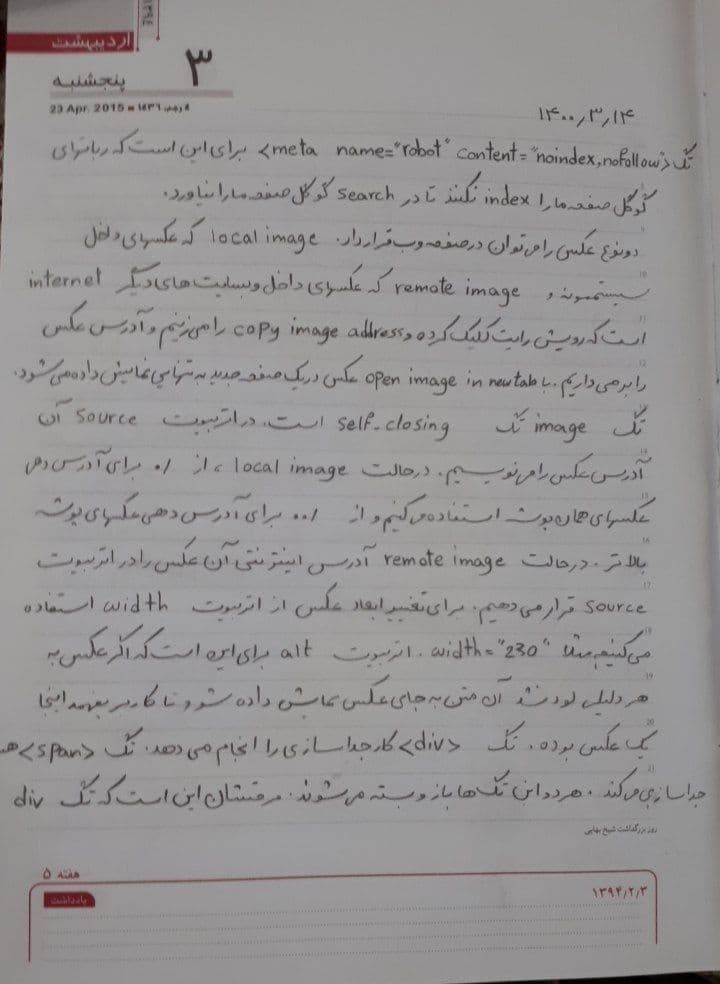 ۱۳۹۴
اردیبهشت
۳
پنجشنبه
23 Apr. 2015 ■ ۱٤۳٦ رجب ٤
۱۴۰۰٫۳٫۱۴
تگ <meta name="robot" content="noindex,nofollow"> برای این است که رباتهای
گوگل صفحه ما را index نکنند تا در search گوگل صفحه ما را نیاورد.
دو نوع عکس را می توان در صفحه وب قرار داد. local image که عکسهای داخل
سیستمونه و remote image که عکسهای داخل وبسایت های دیگر internet
است که رویش رایت کلیک کرده و copy image address را می زنیم و آدرس عکس
را بر می داریم. با open image in new tab عکس در یک صفحه جدید به تنهایی نمایش داده می شود.
تگ image تگ self-closing است. در اتریبوت source آن
آدرس عکس را می نویسیم. در حالت local image، از ./ برای آدرس دهی
عکسهای همان پوشه استفاده می کنیم و از ../ برای آدرس دهی عکسهای پوشه
بالاتر. در حالت remote image آدرس اینترنتی آن عکس را در اتریبوت
source قرار می دهیم. برای تغییر ابعاد عکس از اتریبوت width استفاده
می کنیم مثلا width="230". اتریبوت alt برای این است که اگر عکس به
هر دلیلی لود نشد آن متن به جای عکس نمایش داده شود تا کاربر بفهمد اینجا
یک عکس بوده. تگ <div> کار جداسازی را انجام می دهد. تگ <span> هم
جداسازی می کند. هر دو این تگ ها باز و بسته می شوند. فرقشان این است که تگ div
روز بزرگداشت شیخ بهایی
هفته ۵
۱۳۹۴/۲/۳
یادداشت